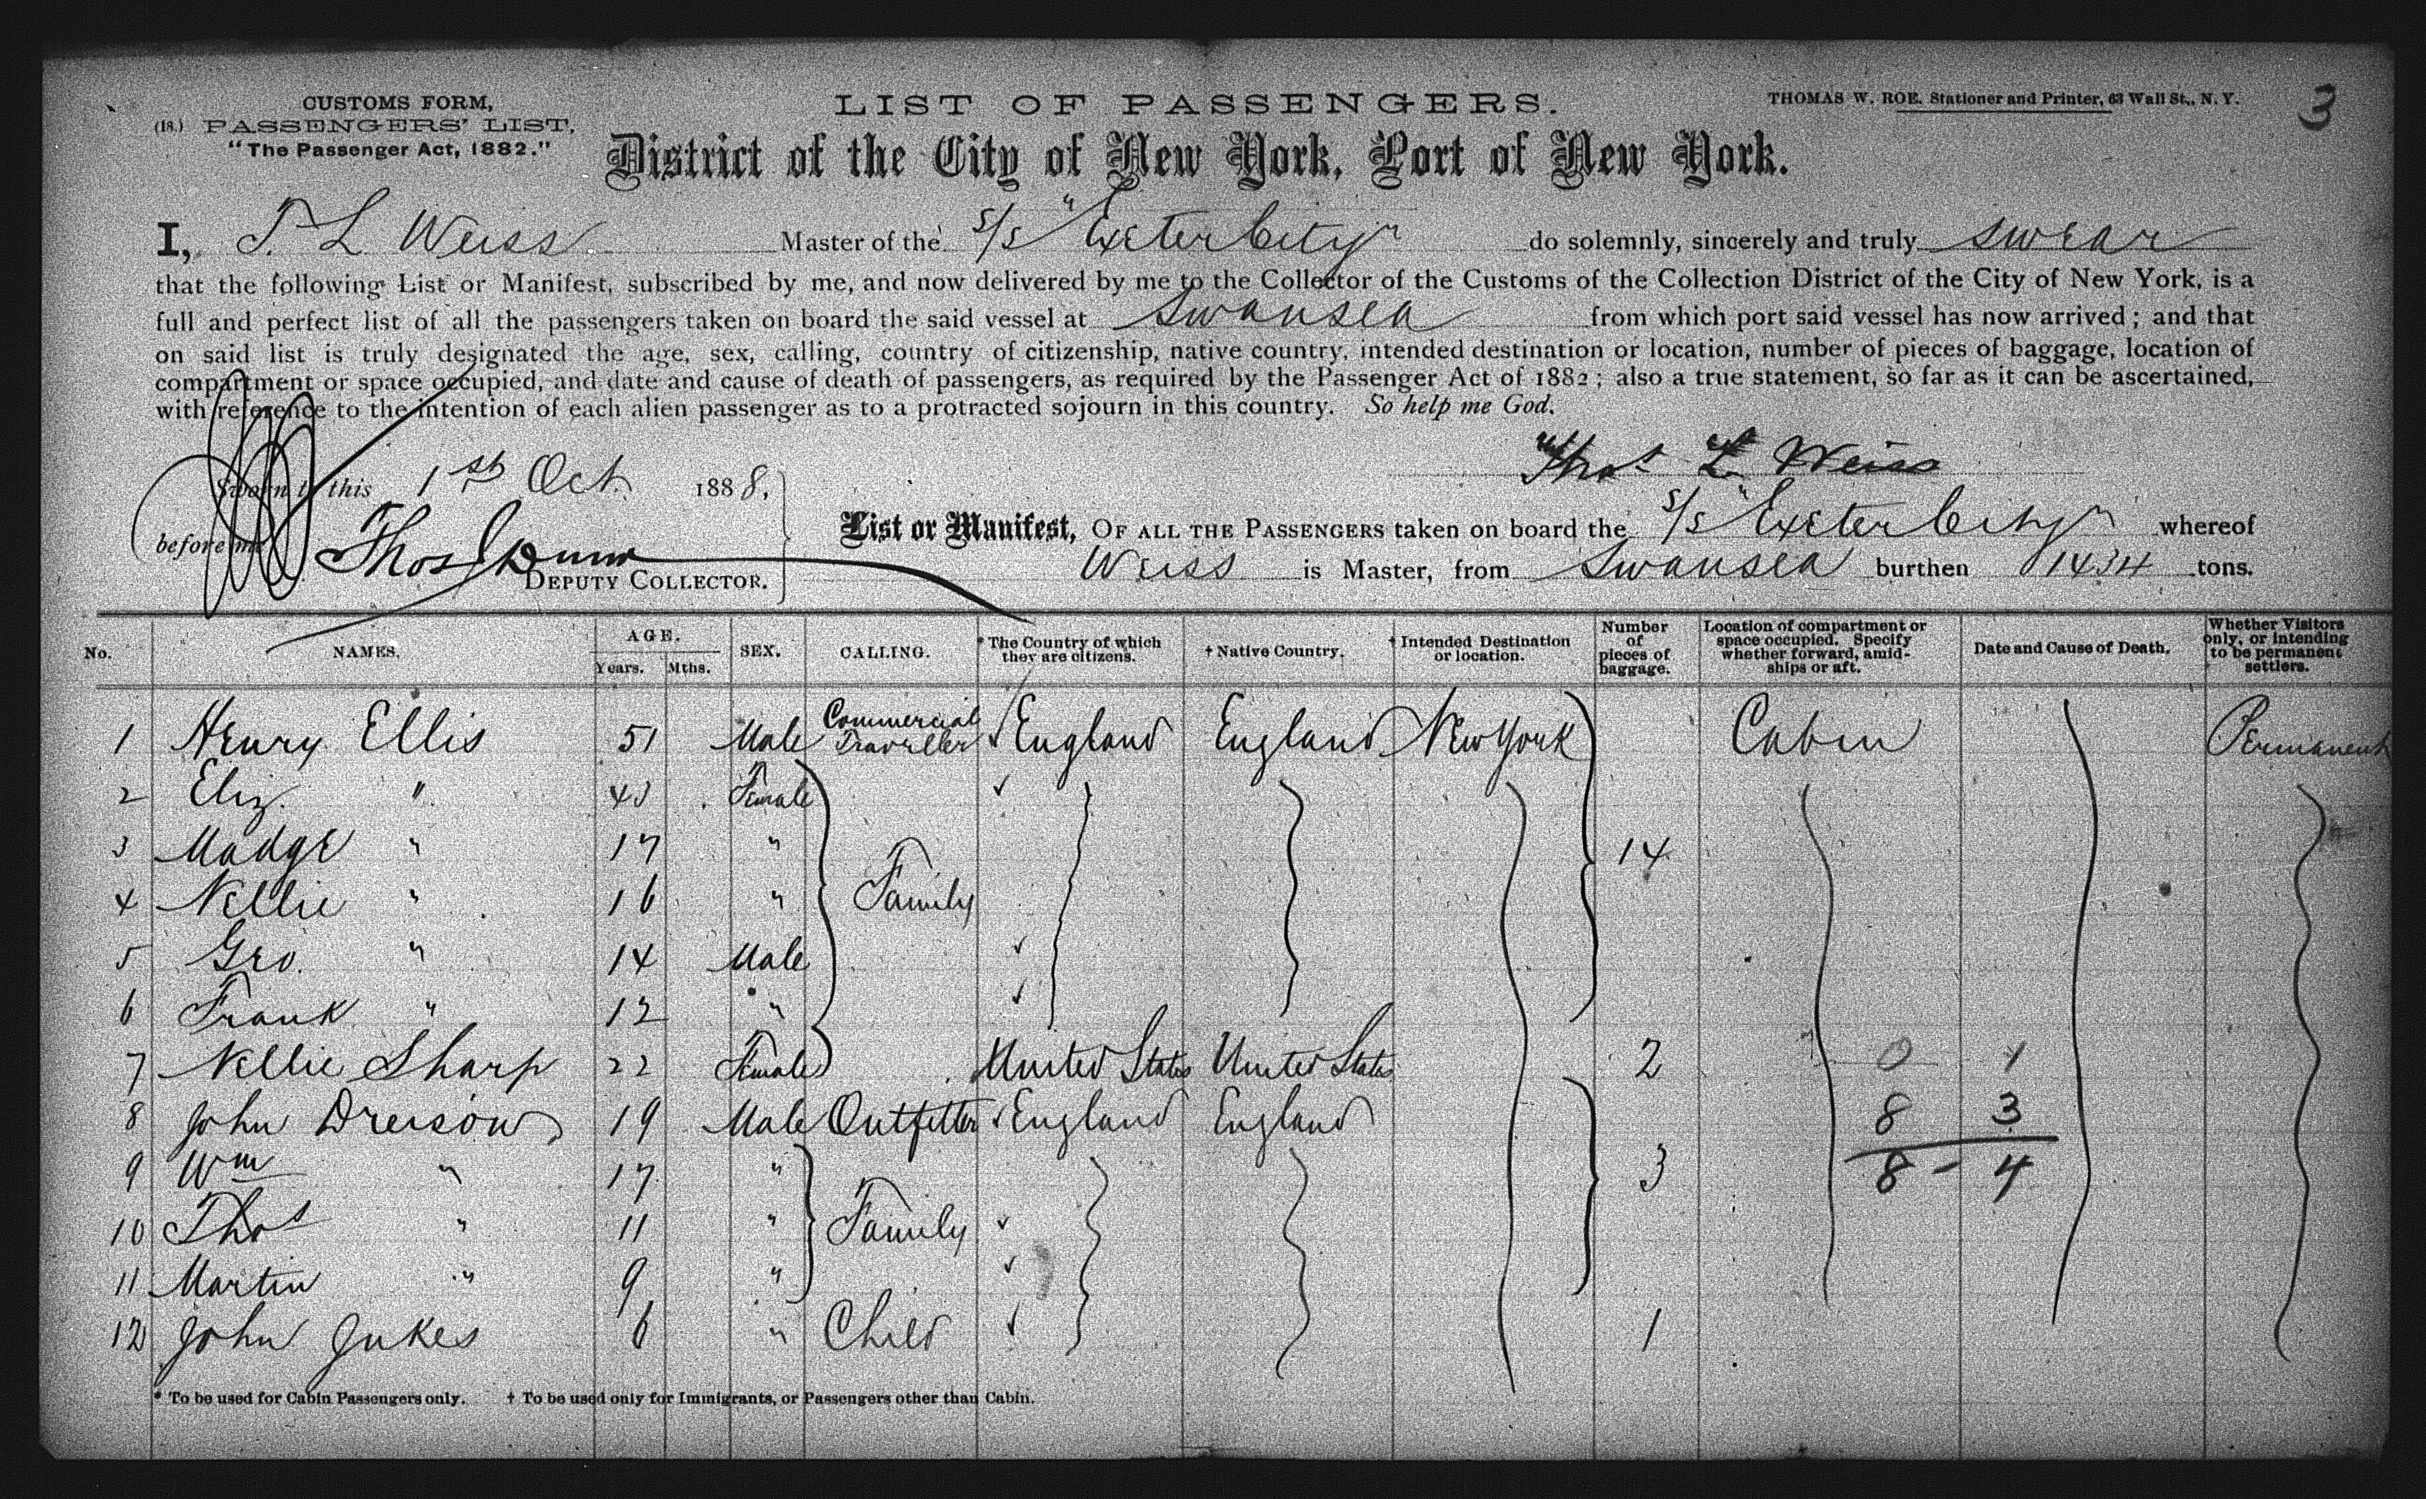 CUSTOMS FORM,
(18.) PASSENGERS' LIST,
"The Passenger Act, 1882."
LIST OF PASSENGERS.
THOMAS W. ROE, Stationer and Printer, 63 Wall St., N. Y.
3
District of the City of New York, Port of New York.
I, T. L. Weiss Master of the S/S "Exeter City" do solemnly, sincerely and truly swear
that the following List or Manifest, subscribed by me, and now delivered by me to the Collector of the Customs of the Collection District of the City of New York, is a
full and perfect list of all the passengers taken on board the said vessel at Swansea from which port said vessel has now arrived; and that
on said list is truly designated the age, sex, calling, country of citizenship, native country, intended destination or location, number of pieces of baggage, location of
compartment or space occupied, and date and cause of death of passengers, as required by the Passenger Act of 1882; also a true statement, so far as it can be ascertained,
with reference to the intention of each alien passenger as to a protracted sojourn in this country. So help me God.
Thos L Weiss
Sworn to this 1st Oct. 1888.
before me Thos Dunn
DEPUTY COLLECTOR.
List or Manifest, OF ALL THE PASSENGERS taken on board the S/S "Exeter City" whereof
Weiss is Master, from Swansea burthen 1434 tons.
No. NAMES. AGE. Years. Mths. SEX. CALLING. * The Country of which they are citizens. † Native Country. † Intended Destination or location. Number of pieces of baggage. Location of compartment or space occupied. Specify whether forward, amidships or aft. Date and Cause of Death. Whether Visitors only, or intending to be permanent settlers.
1 Henry Ellis 51 Male Commercial Traveller England England New York Cabin Permanent
2 Eliz. " 43 Female
3 Madge " 17 " 14
4 Nellie " 16 " Family
5 Geo. " 14 Male
6 Frank " 12 "
7 Nellie Sharp 22 Female United States United States 2 0 1
8 John Dreison 19 Male Outfitter England England 8 3
9 Wm " 17 " 3 8 - 4
10 Thos " 11 " Family
11 Martin " 9 "
12 John Jukes 6 " Child 1
* To be used for Cabin Passengers only. † To be used only for Immigrants, or Passengers other than Cabin.